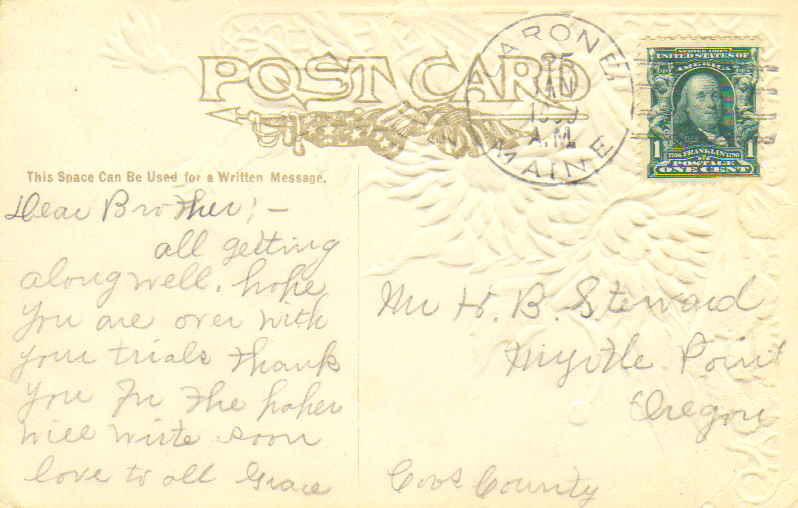 POST CARD
ARONE,
25
JAN
A.M.
MAINE
UNITED STATES OF
AMERICA
1 1
POSTAGE
ONE CENT
This Space Can Be Used for a Written Message.
Dear Brother; –
all getting
along well. hope
you are over with
your trials thank
you for the paper
will write soon
love to all Grace
Mr H. B. Steward
Myrtle Point
Oregon
Coos County